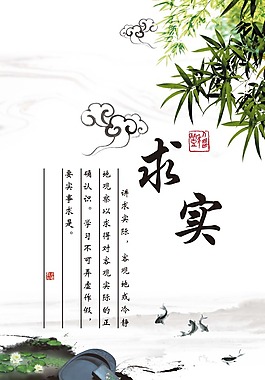 求实
讲求实际，客观地或冷静
地观察以求得对客观实际的正
确认识。学习不可弄虚作假，
要实事求是。